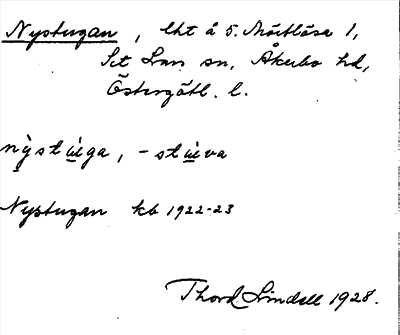 Nystugan, lht å S. Mörtlösa 1,
Sct Lars sn, Åkerbo hd,
Östergötl. l.
nỳstu̇ga, -stu̇va
Nystugan kb 1922-23
Thord Lindell 1928.